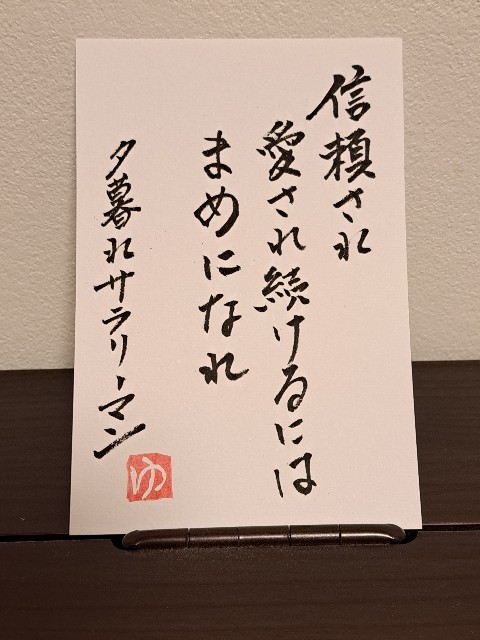 信頼され
愛され続けるには
まめになれ
夕暮れサラリーマン
ゆ